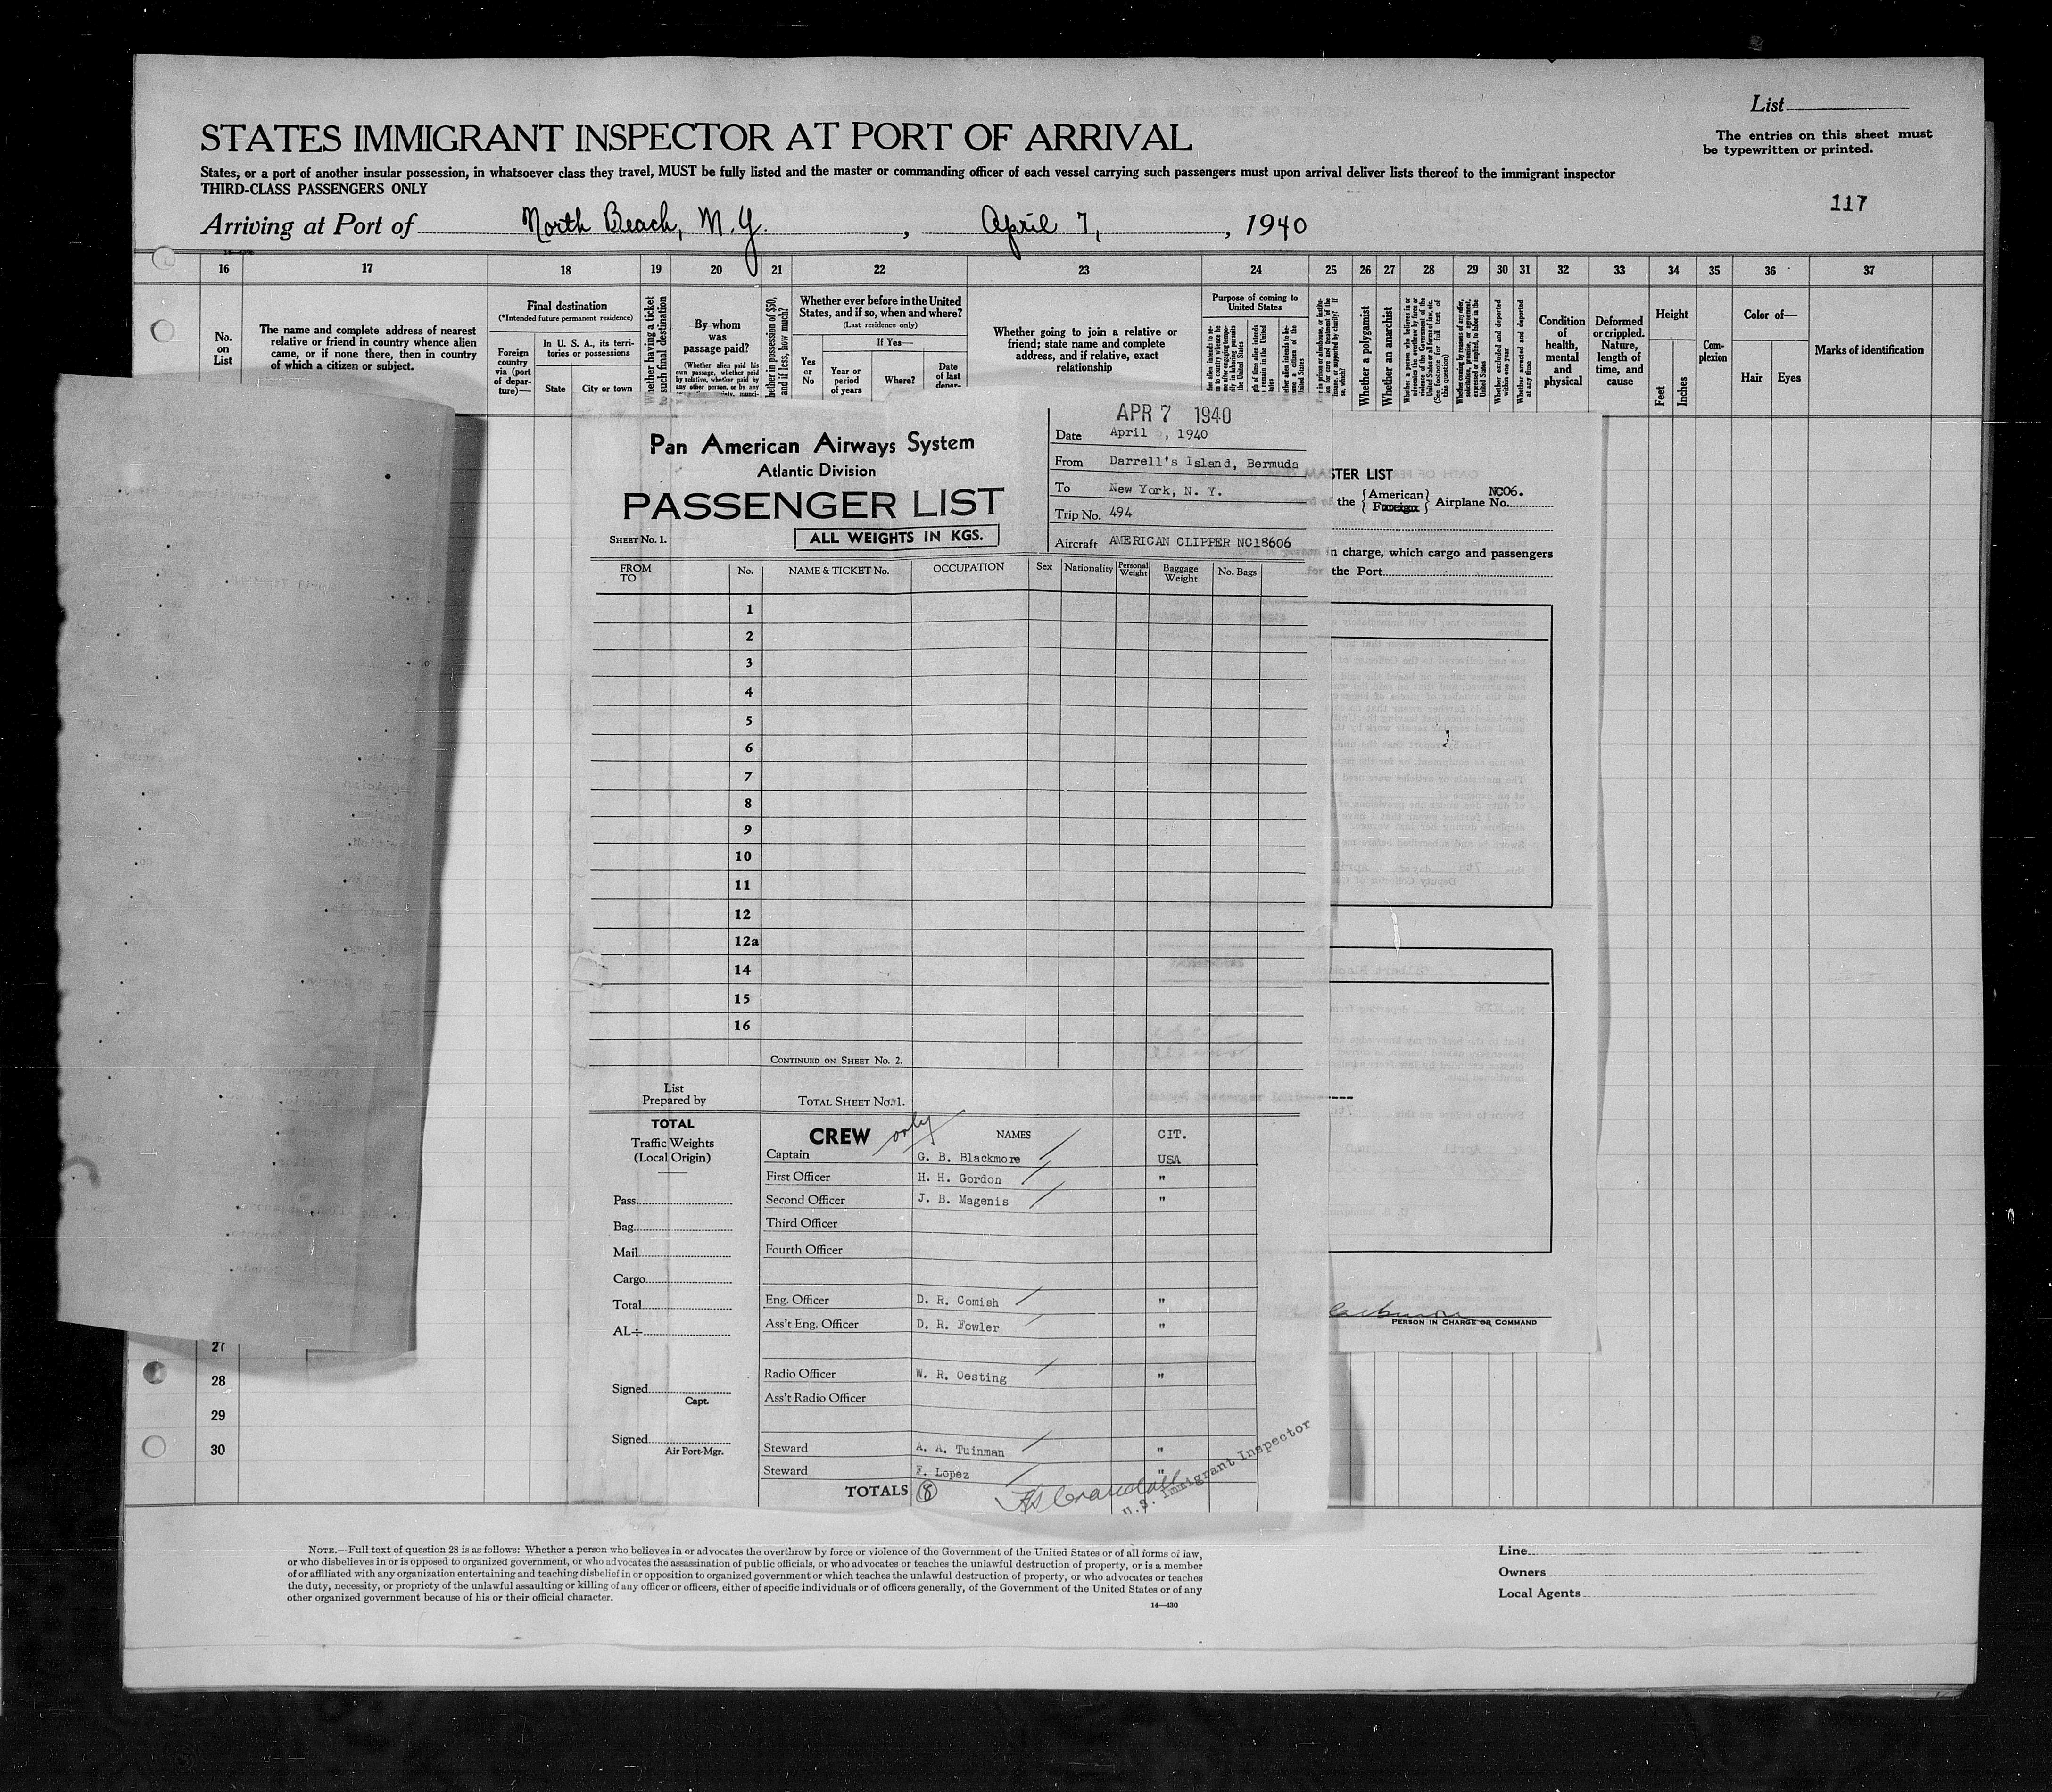 List
STATES IMMIGRANT INSPECTOR AT PORT OF ARRIVAL
The entries on this sheet must
be typewritten or printed.
States, or a port of another insular possession, in whatsoever class they travel, MUST be fully listed and the master or commanding officer of each vessel carrying such passengers must upon arrival deliver lists thereof to the immigrant inspector
THIRD-CLASS PASSENGERS ONLY
117
Arriving at Port of North Beach, N.Y., April 7, 1940
16 17 18 19 20 21 22 23 24 25 26 27 28 29 30 31 32 33 34 35 36 37
No. on List
The name and complete address of nearest
relative or friend in country whence alien
came, or if none there, then in country
of which a citizen or subject.
Final destination
(*Intended future permanent residence)
Foreign country via (port of departure)—
In U. S. A., its territories or possessions
State
City or town
Whether having a ticket
such final destination
By whom
was
passage paid?
(Whether alien paid his
own passage, whether paid
by relative, whether paid by
any other person, or by any
Whether ever before in the United
States, and if so, when and where?
(Last residence only)
Yes or No
If Yes—
Year or period of years
Where?
Date of last
Whether going to join a relative or
friend; state name and complete
address, and if relative, exact
relationship
Purpose of coming to
United States
Whether a polygamist
Whether an anarchist
Condition of health, mental and physical
Deformed or crippled. Nature, length of time, and cause
Height
Feet
Inches
Complexion
Color of—
Hair
Eyes
Marks of identification
Pan American Airways System
Atlantic Division
PASSENGER LIST
SHEET NO. 1.
ALL WEIGHTS IN KGS.
APR 7 1940
Date April , 1940
From Darrell's Island, Bermuda
To New York, N. Y.
Trip No. 494
Aircraft AMERICAN CLIPPER NC18606
STER LIST
the {American Foreign} Airplane No. NC06.
n charge, which cargo and passengers
the Port
FROM TO No. NAME & TICKET No. OCCUPATION Sex Nationality Personal Weight Baggage Weight No. Bags
1
2
3
4
5
6
7
8
9
10
11
12
12a
14
15
16
CONTINUED ON SHEET NO. 2.
List
Prepared by
TOTAL SHEET NO. 1.
TOTAL
Traffic Weights
(Local Origin)
Pass.
Bag.
Mail
Cargo
Total
AL÷
Signed
Capt.
Signed
Air Port-Mgr.
CREW only NAMES CIT.
Captain G. B. Blackmore USA
First Officer H. H. Gordon "
Second Officer J. B. Magenis "
Third Officer
Fourth Officer
Eng. Officer D. R. Comish "
Ass't Eng. Officer D. R. Fowler "
Radio Officer W. R. Oesting "
Ass't Radio Officer
Steward A. A. Tuinman "
Steward F. Lopez "
TOTALS 8
U.S. Immigrant Inspector
PERSON IN CHARGE OR COMMAND
27
28
29
30
NOTE.—Full text of question 28 is as follows: Whether a person who believes in or advocates the overthrow by force or violence of the Government of the United States or of all forms of law,
or who disbelieves in or is opposed to organized government, or who advocates the assassination of public officials, or who advocates or teaches the unlawful destruction of property, or is a member
of or affiliated with any organization entertaining and teaching disbelief in or opposition to organized government or which teaches the unlawful destruction of property, or who advocates or teaches
the duty, necessity, or propriety of the unlawful assaulting or killing of any officer or officers, either of specific individuals or of officers generally, of the Government of the United States or of any
other organized government because of his or their official character.
14—430
Line
Owners
Local Agents